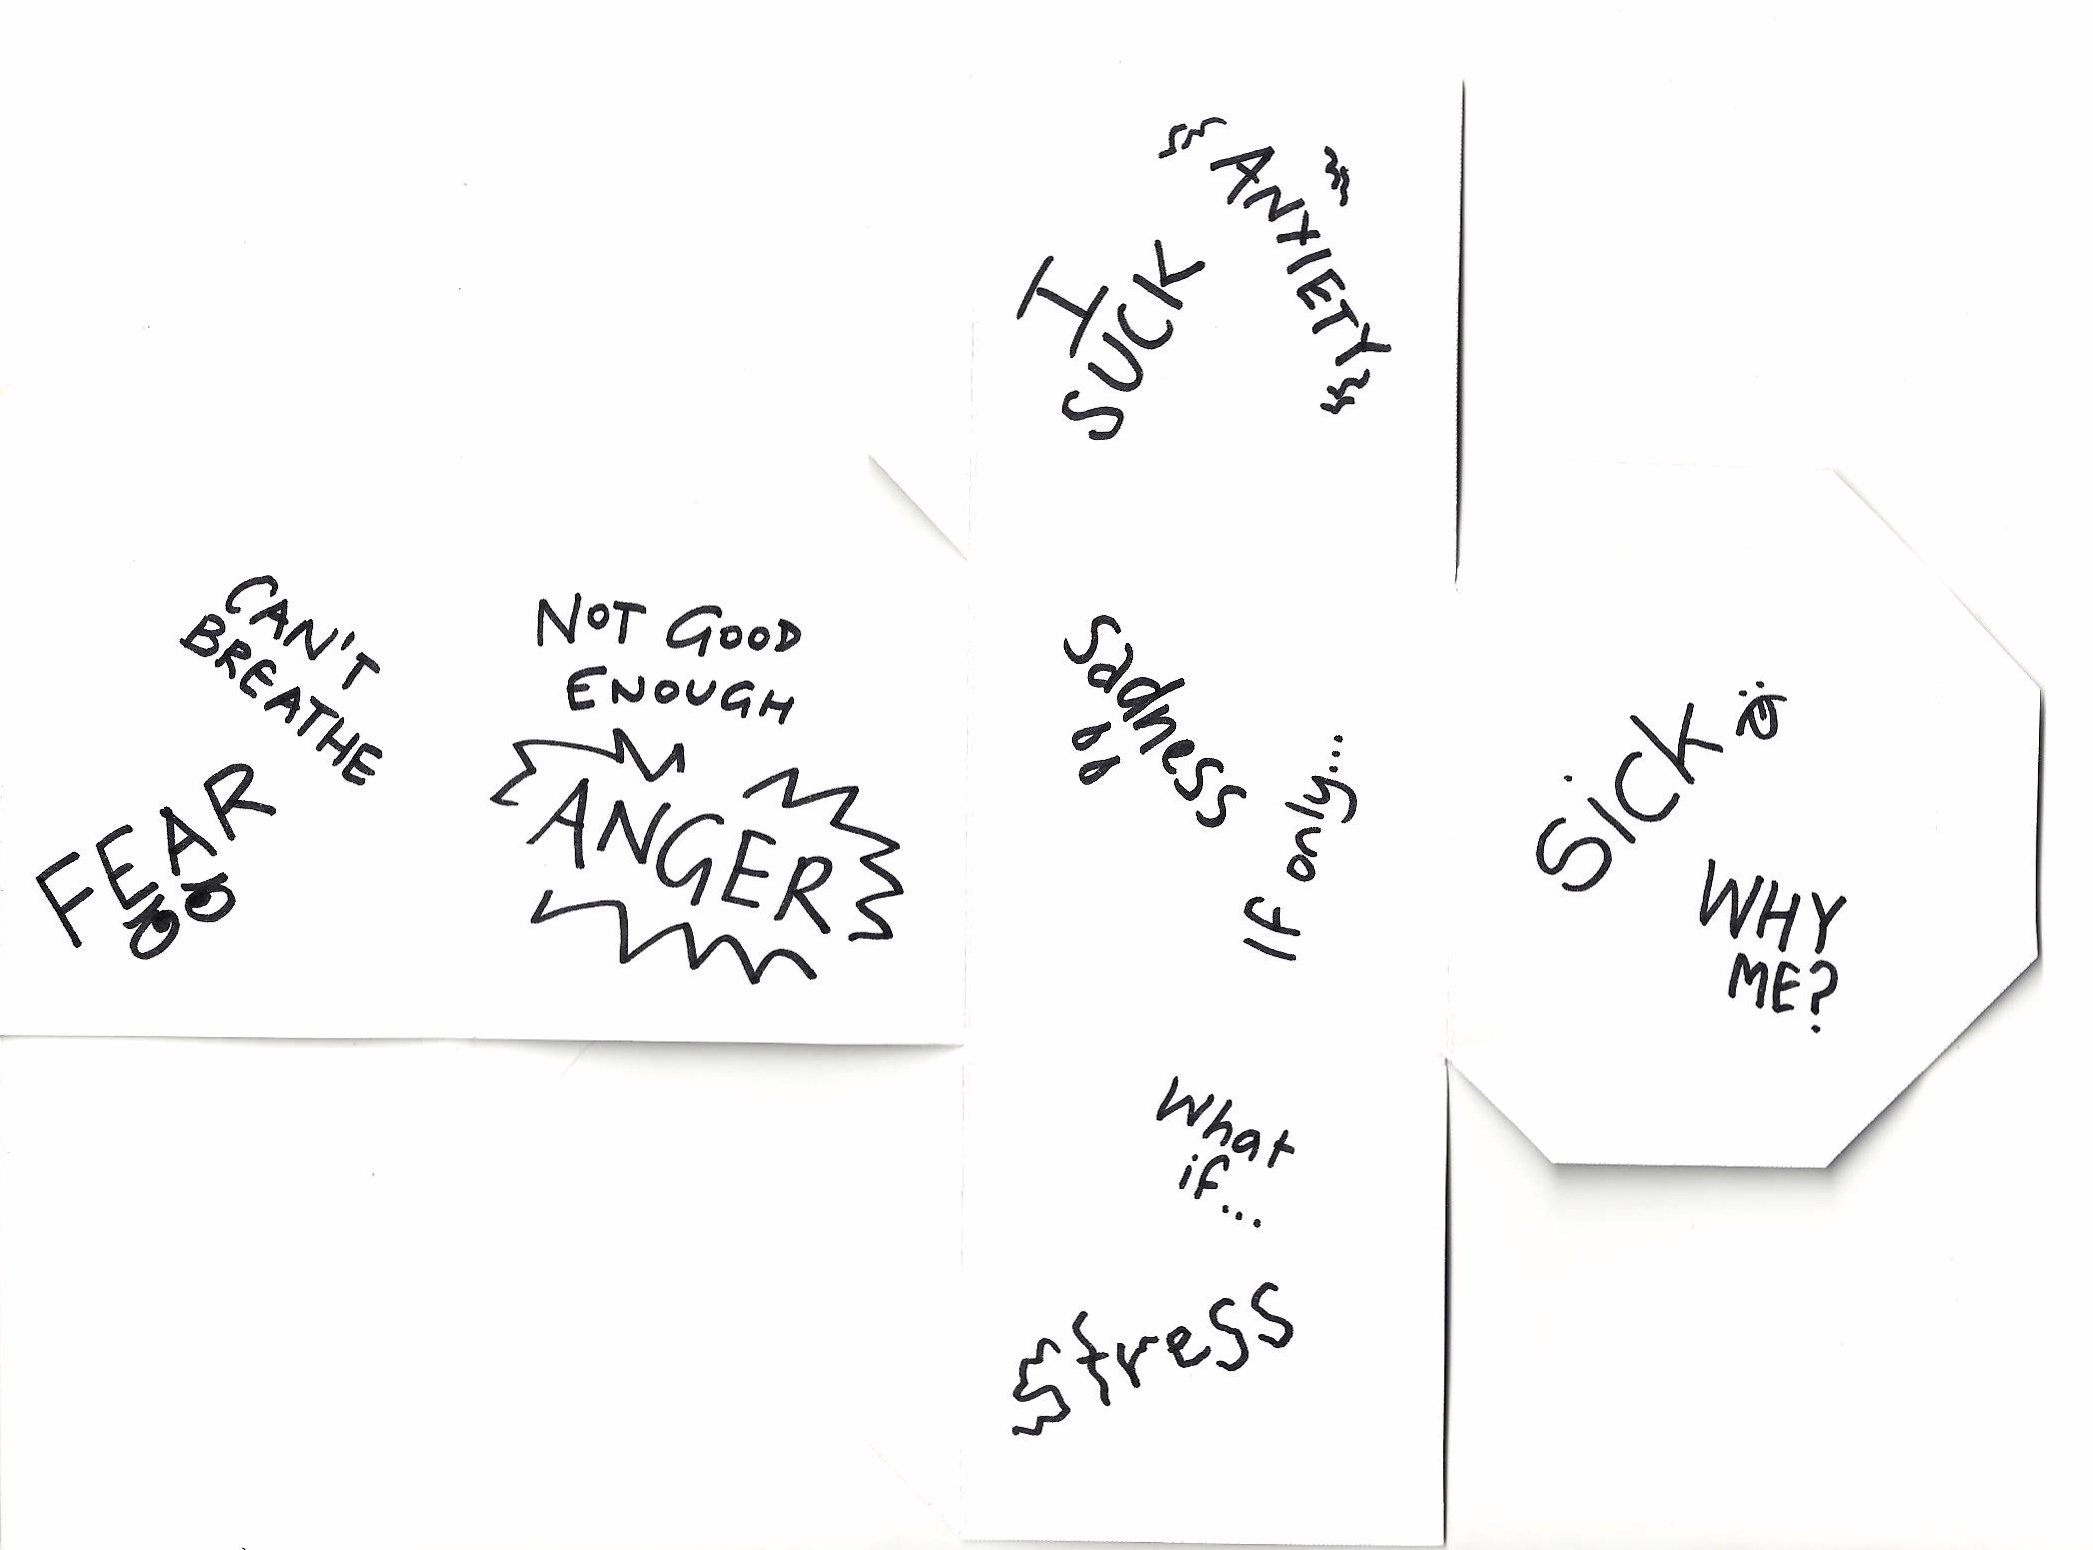 ANXIETY
I
SUCK
CAN'T
BREATHE
FEAR
NOT GOOD
ENOUGH
ANGER
Sadness
IF only...
Sick
WHY
ME?
What
if...
Stress